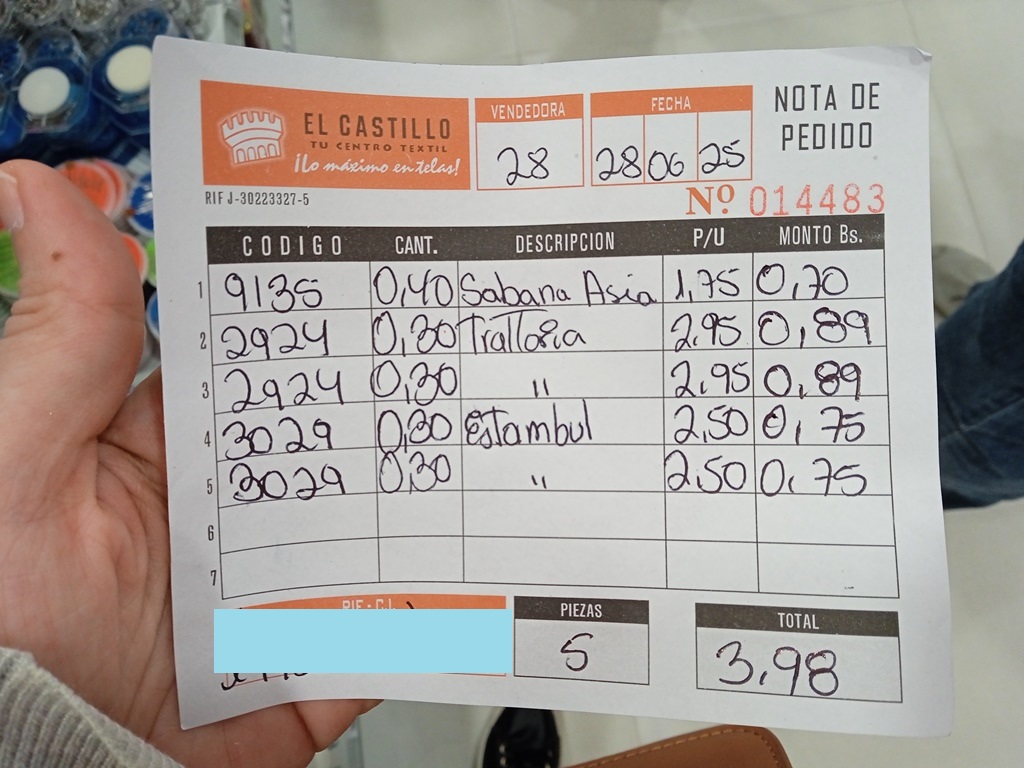 EL CASTILLO
TU CENTRO TEXTIL
¡Lo máximo en telas!
RIF J-30223327-5
VENDEDORA
28
FECHA
28 06 25
NOTA DE
PEDIDO
Nº 014483
CODIGO CANT. DESCRIPCION P/U MONTO Bs.
1 9135 0,40 Sabana Asia 1,75 0,70
2 2924 0,30 Trattoria 2,95 0,89
3 2924 0,30 " 2,95 0,89
4 3029 0,30 Estambul 2,50 0,75
5 3029 0,30 " 2,50 0,75
6
7
RIF - C.I.
PIEZAS
5
TOTAL
3,98